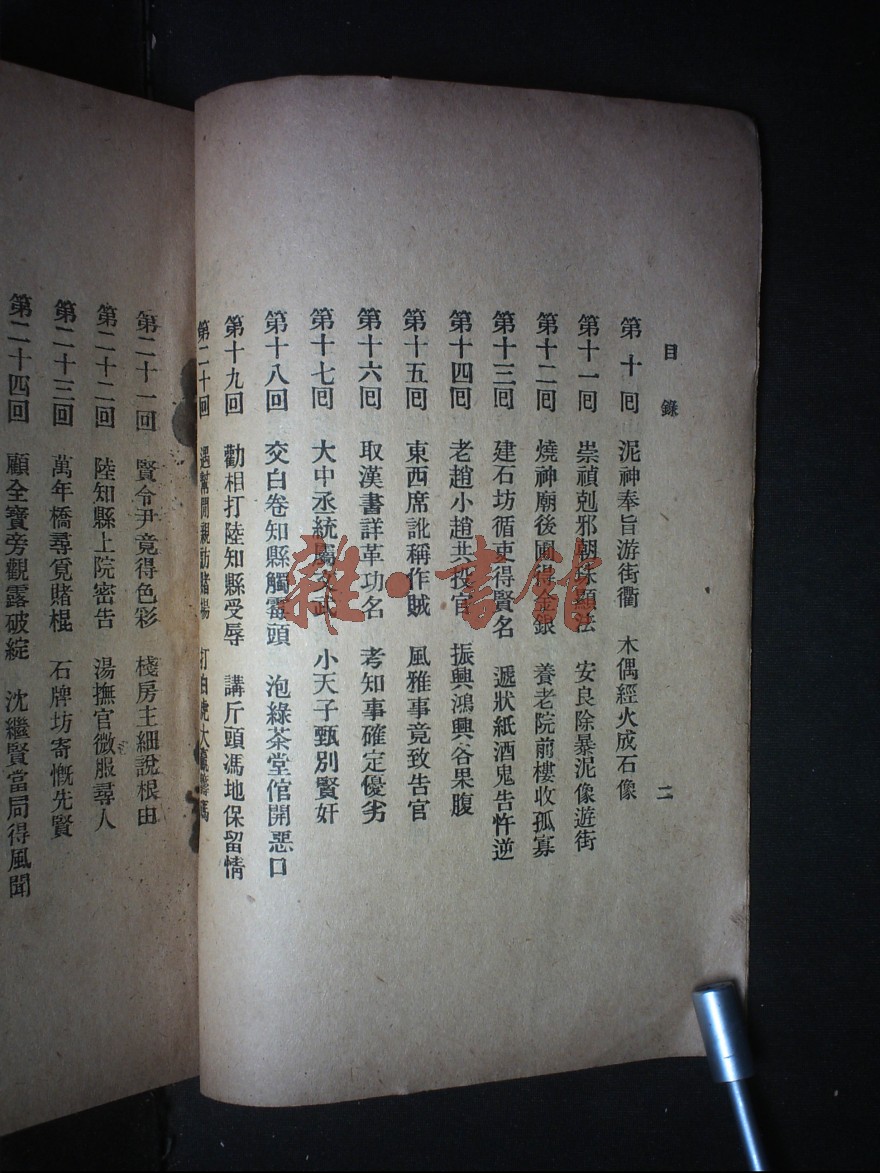 目錄
二
第十囘 泥神奉旨游街衢 木偶經火成石像
第十一囘 崇禎剋邪朝珠顯法 安良除暴泥像遊街
第十二囘 燒神廟後圃得金銀 養老院前樓收孤寡
第十三囘 建石坊循吏得賢名 遞狀紙酒鬼告忤逆
第十四囘 老趙小趙共投官 振興鴻興谷果腹
第十五囘 東西席訛稱作賊 風雅事竟致告官
第十六囘 取漢書詳革功名 考知事確定優劣
第十七囘 大中丞統屬文武 小天子甄別賢奸
第十八囘 交白卷知縣觸霉頭 泡綠茶堂倌開惡口
第十九囘 勸相打陸知縣受辱 講斤頭馮地保留情
第二十囘 遇幫閒親訪賭場 打白虎大
第二十一囘 賢令尹竟得色彩 棧房主細說根由
第二十二囘 陸知縣上院密告 湯撫官微服尋人
第二十三囘 萬年橋尋覓賭棍 石牌坊寄慨先賢
第二十四囘 顧全寶旁觀露破綻 沈繼賢當局得風聞
雜·書館